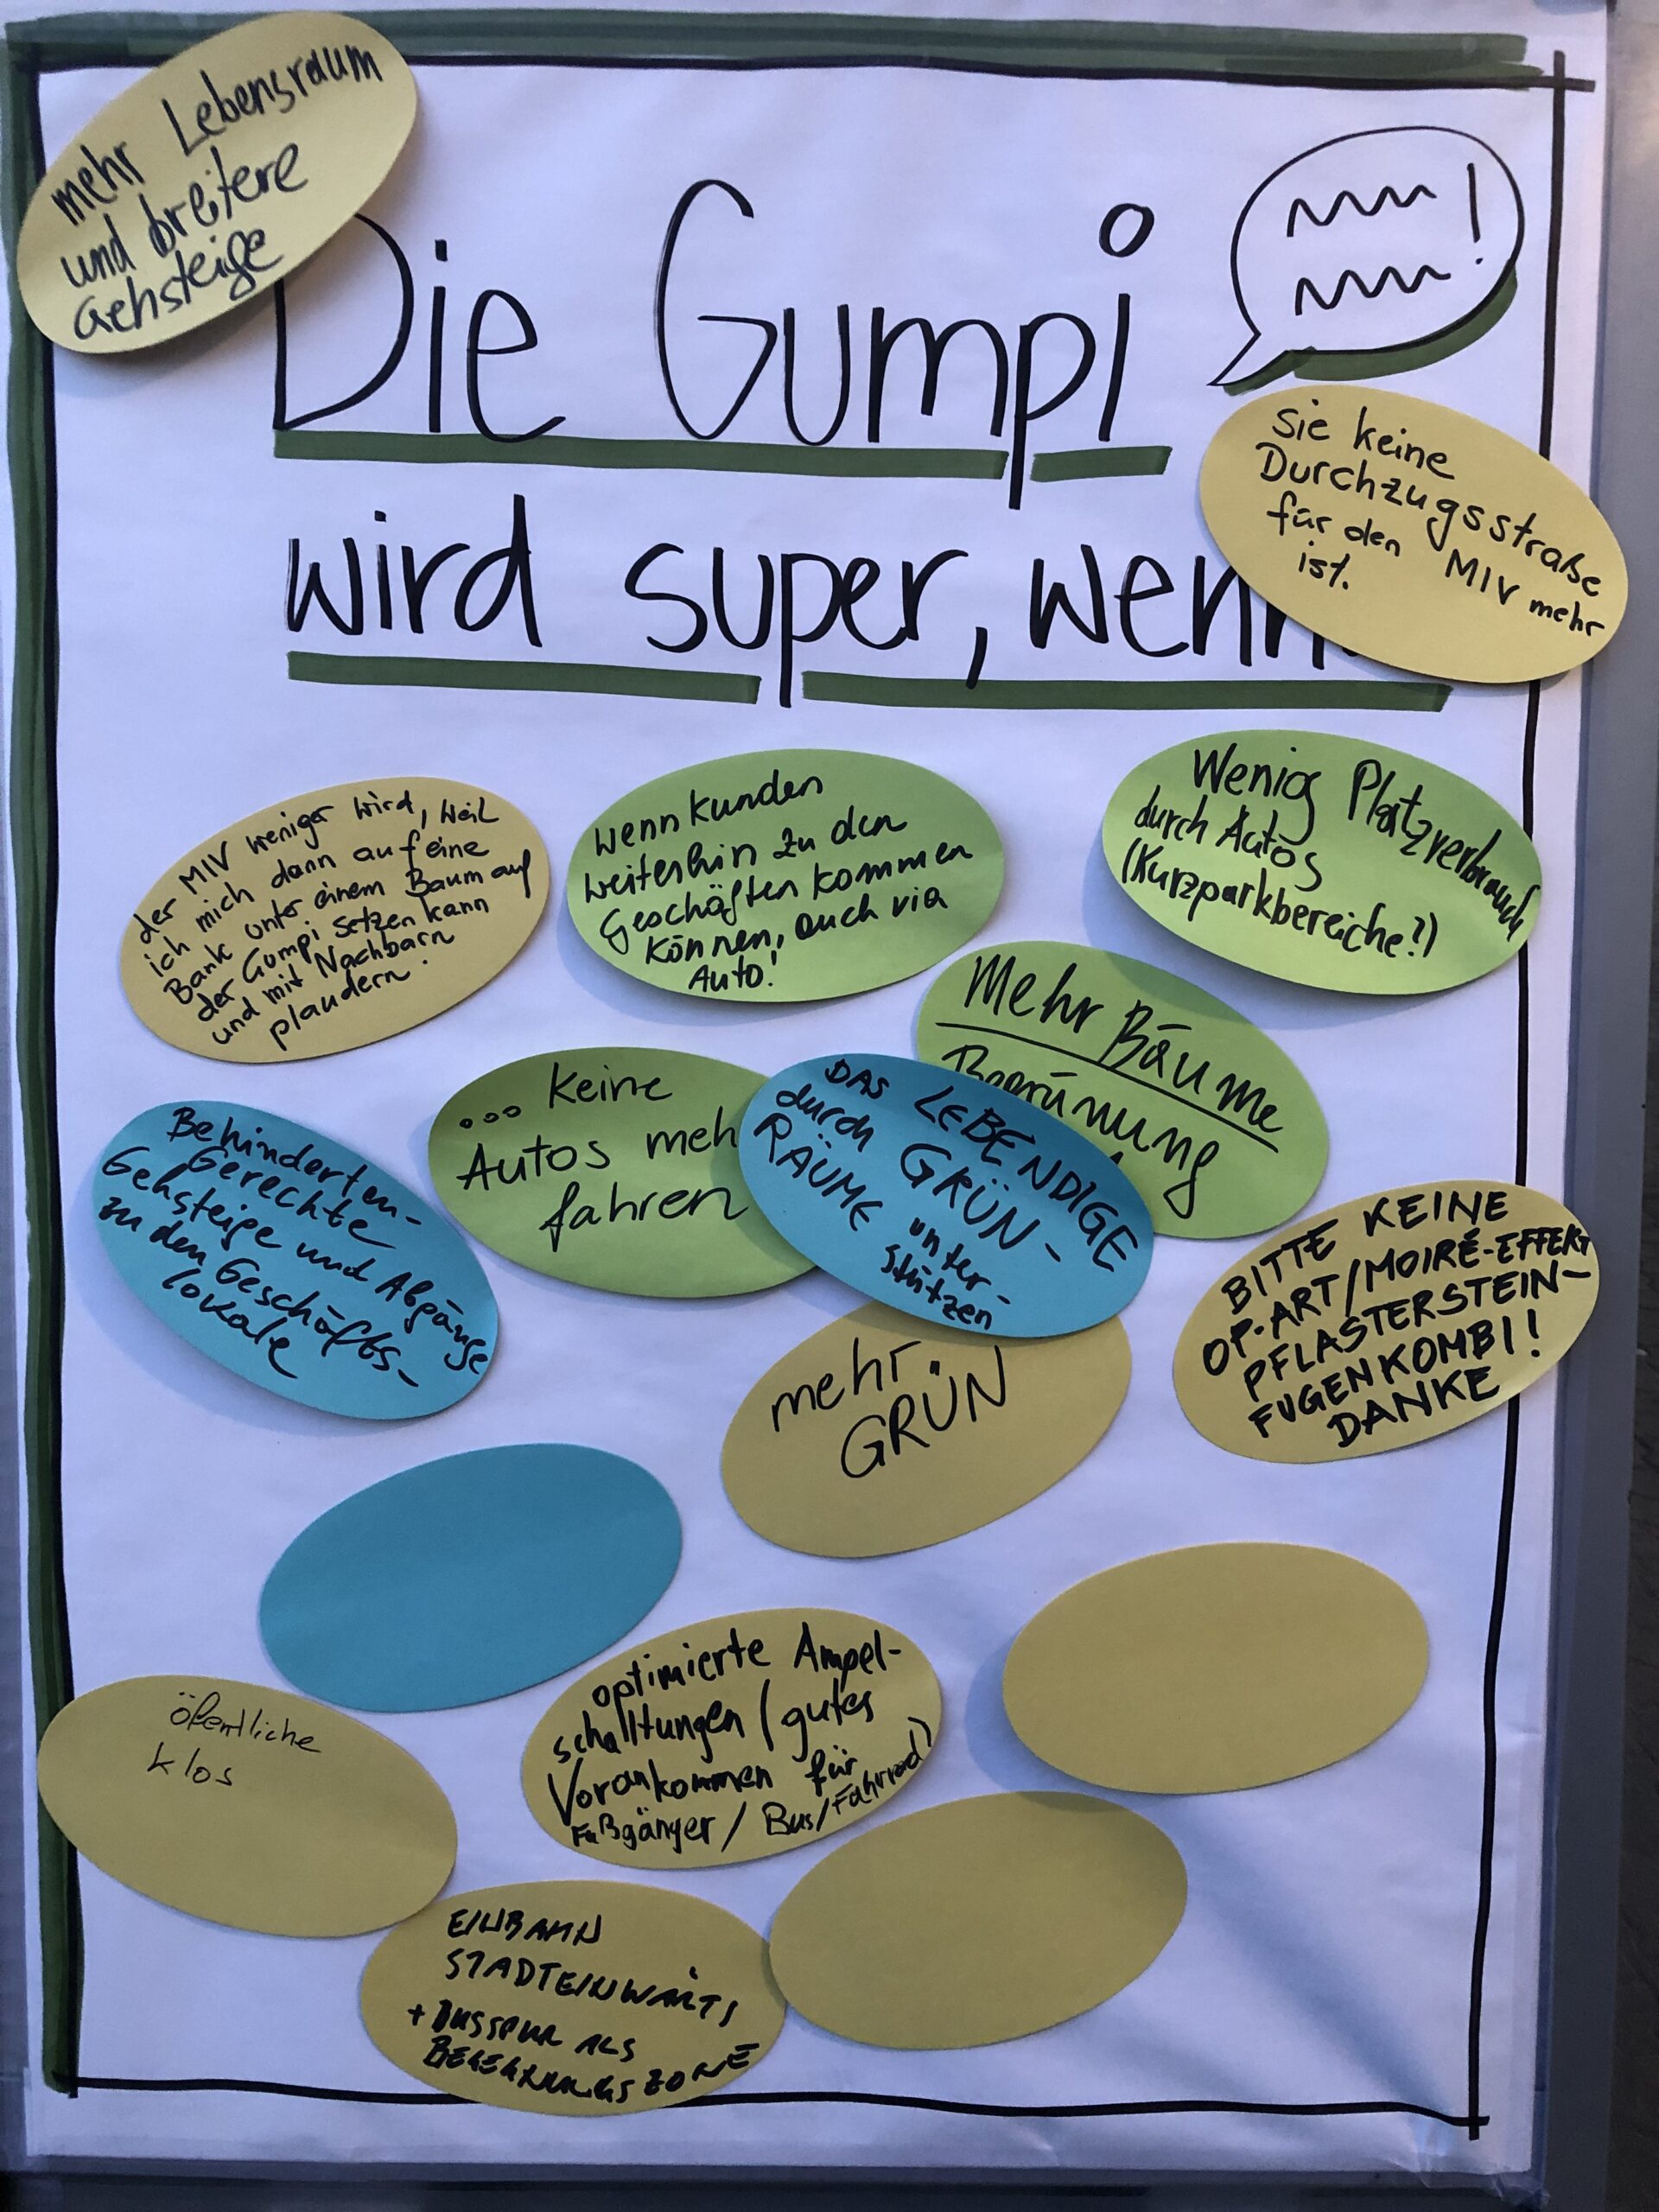 mehr Lebensraum
und breitere
Gehsteige
Die Gumpi
wird super, wenn
sie keine
Durchzugsstraße
für den MIV mehr
ist.
der MIV weniger wird, weil
ich mich dann auf eine
Bank unter einem Baum auf
der Gumpi setzen kann
und mit Nachbarn
plaudern.
wenn Kunden
weiterhin zu den
Geschäften kommen
können, auch via
Auto!
Wenig Platzverbrauch
durch Autos
(Kurzparkbereiche?)
Mehr Bäume
Begrünung
... keine
Autos meh
fahren
DAS LEBENDIGE
durch GRÜN-
RÄUME unter-
stützen
Behinderten-
Gerechte
Gehsteige und Abgänge
zu den Geschäfts-
lokale
BITTE KEINE
OP-ART/MOIRÉ-EFFEKT
PFLASTERSTEIN-
FUGENKOMBI!
DANKE
mehr
GRÜN
optimierte Ampel-
schalltungen (gutes
Vorankommen für
Fußgänger / Bus/Fahrrad)
öfentliche
klos
EINBAHN
STADTEINWÄRTS
+ BUSSPUR ALS
BEGEGNUNGSZONE